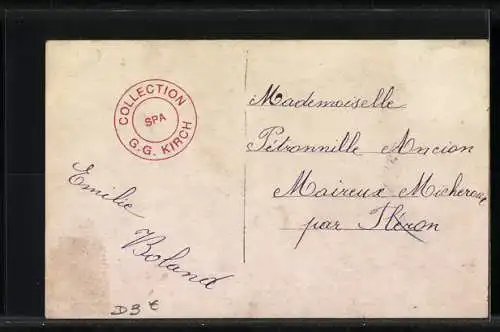 COLLECTION
SPA
G.G. KIRCH
Emilie
Boland
Mademoiselle
Pétronnille Ancion
Maireux Micheroux
par Fléron
D3 €